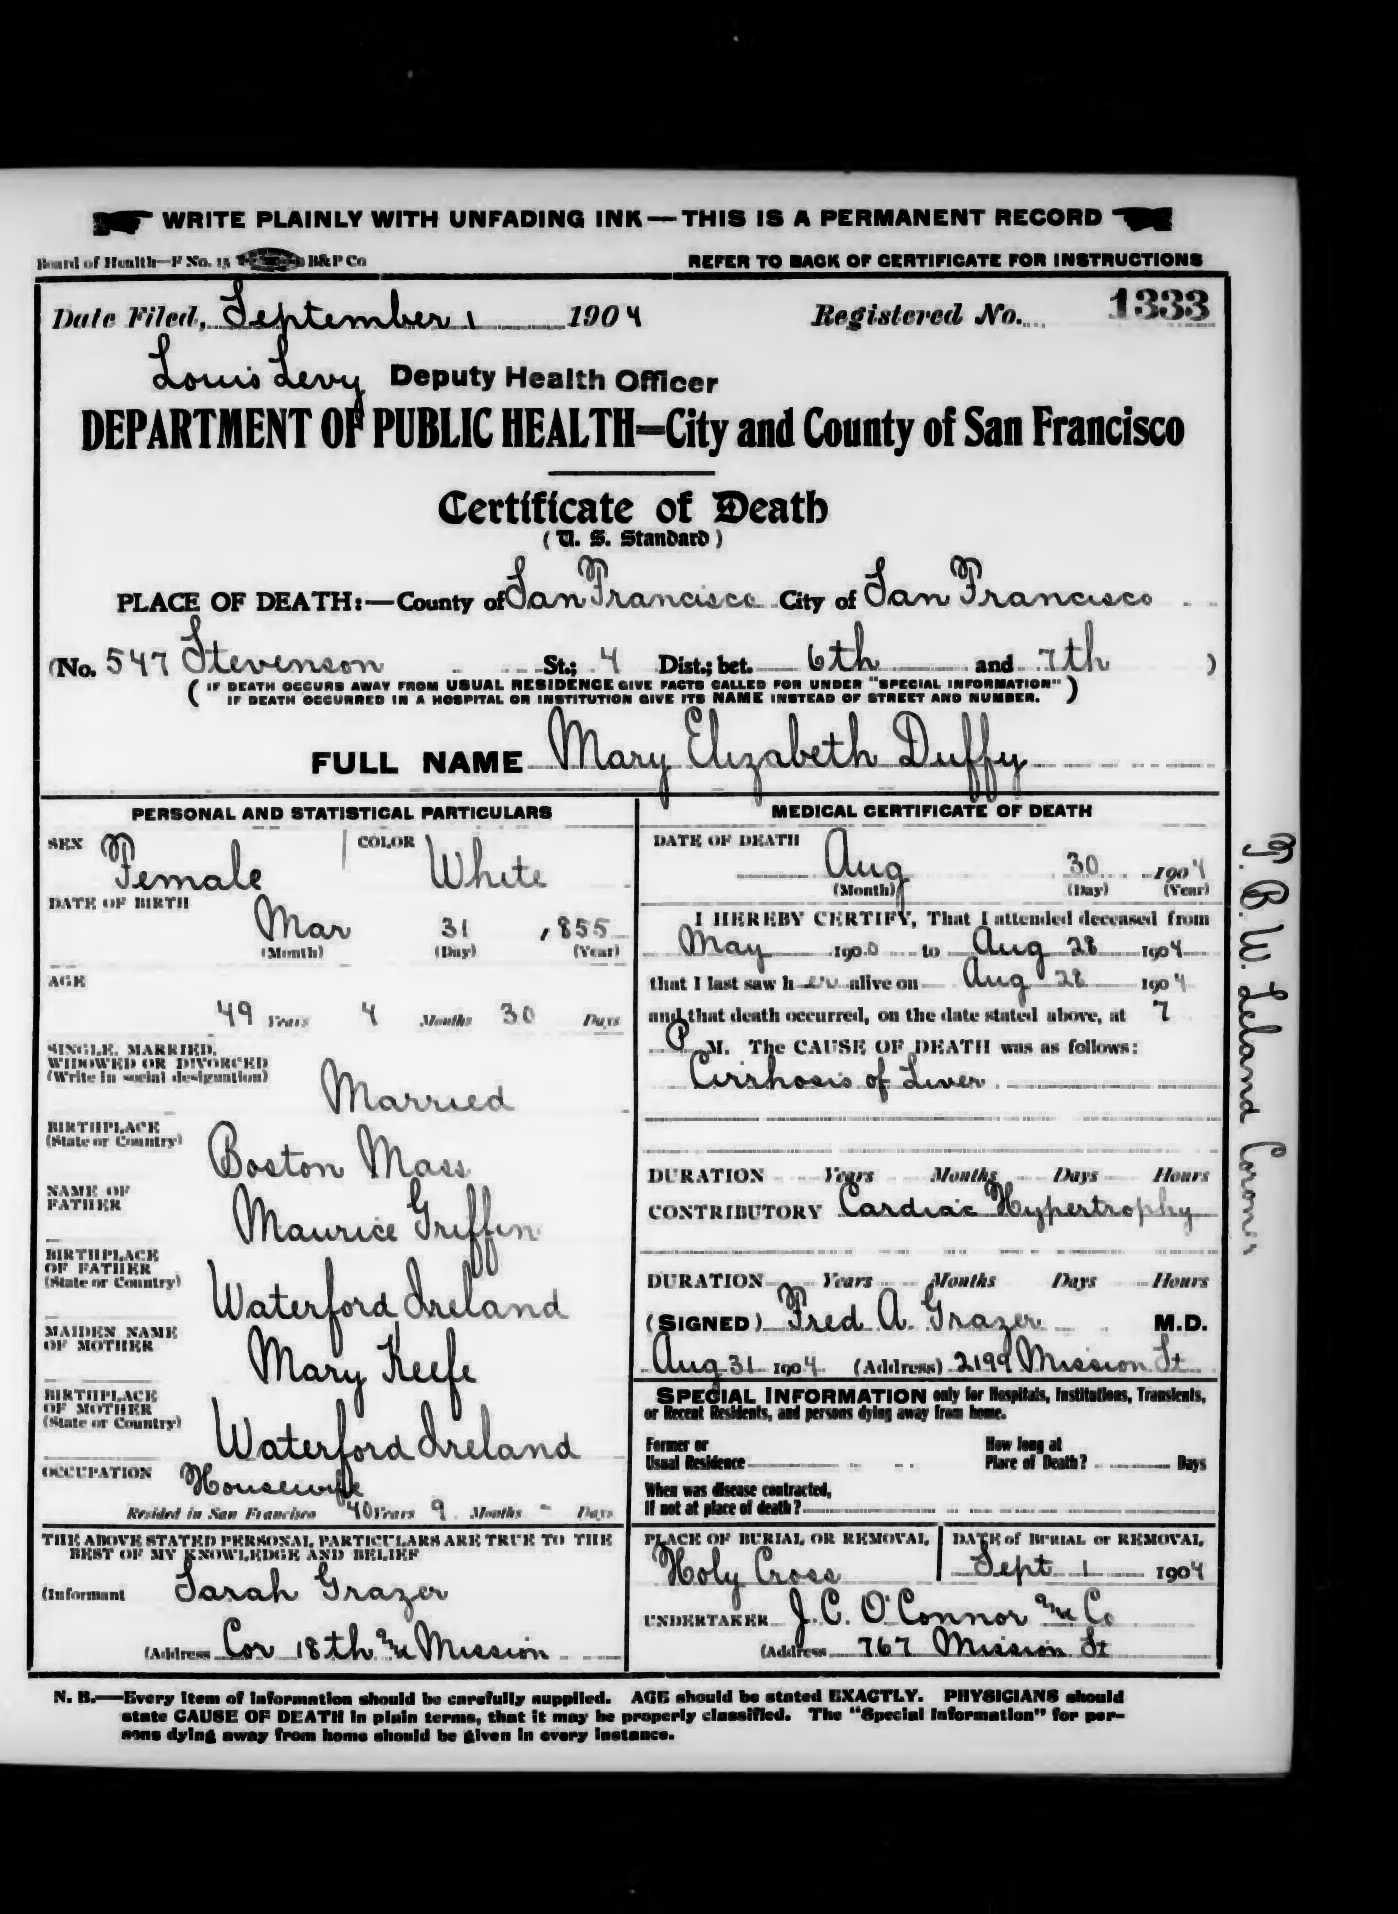 WRITE PLAINLY WITH UNFADING INK — THIS IS A PERMANENT RECORD
Board of Health—F No. 15 B&P Co
REFER TO BACK OF CERTIFICATE FOR INSTRUCTIONS
Date Filed, September 1 1904 Registered No. 1333
Louis Levy Deputy Health Officer
DEPARTMENT OF PUBLIC HEALTH—City and County of San Francisco
Certificate of Death
(U. S. Standard)
PLACE OF DEATH:—County of San Francisco City of San Francisco
(No. 547 Stevenson St.; 4 Dist.; bet. 6th and 7th )
( IF DEATH OCCURS AWAY FROM USUAL RESIDENCE GIVE FACTS CALLED FOR UNDER "SPECIAL INFORMATION"
IF DEATH OCCURRED IN A HOSPITAL OR INSTITUTION GIVE ITS NAME INSTEAD OF STREET AND NUMBER. )
FULL NAME Mary Elizabeth Duffy
PERSONAL AND STATISTICAL PARTICULARS
SEX Female COLOR White
DATE OF BIRTH
Mar 31 , 855
(Month) (Day) (Year)
AGE
49 Years 4 Months 30 Days
SINGLE, MARRIED,
WIDOWED OR DIVORCED
(Write in social designation)
Married
BIRTHPLACE
(State or Country)
Boston Mass
NAME OF
FATHER
Maurice Griffin
BIRTHPLACE
OF FATHER
(State or Country)
Waterford Ireland
MAIDEN NAME
OF MOTHER
Mary Keefe
BIRTHPLACE
OF MOTHER
(State or Country)
Waterford Ireland
OCCUPATION Housewife
Resided in San Francisco 40 Years 9 Months - Days
THE ABOVE STATED PERSONAL PARTICULARS ARE TRUE TO THE
BEST OF MY KNOWLEDGE AND BELIEF
(Informant Sarah Grazer
(Address Cor 18th and Mission
MEDICAL CERTIFICATE OF DEATH
DATE OF DEATH
Aug 30 1904
(Month) (Day) (Year)
I HEREBY CERTIFY, That I attended deceased from
May 1900 to Aug 28 1904
that I last saw h er alive on Aug 28 1904
and that death occurred, on the date stated above, at 7
P M. The CAUSE OF DEATH was as follows:
Cirrhosis of Liver
DURATION Years Months Days Hours
CONTRIBUTORY Cardiac Hypertrophy
DURATION Years Months Days Hours
(SIGNED) Fred A. Grazer M.D.
Aug 31 1904 (Address) 2199 Mission St
SPECIAL INFORMATION only for Hospitals, Institutions, Transients,
or Recent Residents, and persons dying away from home.
Former or
Usual Residence
How long at
Place of Death? Days
When was disease contracted,
If not at place of death?
PLACE OF BURIAL OR REMOVAL
Holy Cross
DATE of BURIAL or REMOVAL
Sept 1 1904
UNDERTAKER J. C. O'Connor and Co
(Address 767 Mission St
N. B.—Every item of information should be carefully supplied. AGE should be stated EXACTLY. PHYSICIANS should
state CAUSE OF DEATH in plain terms, that it may be properly classified. The "Special Information" for per-
sons dying away from home should be given in every instance.
T. B. W. Leland Coroner